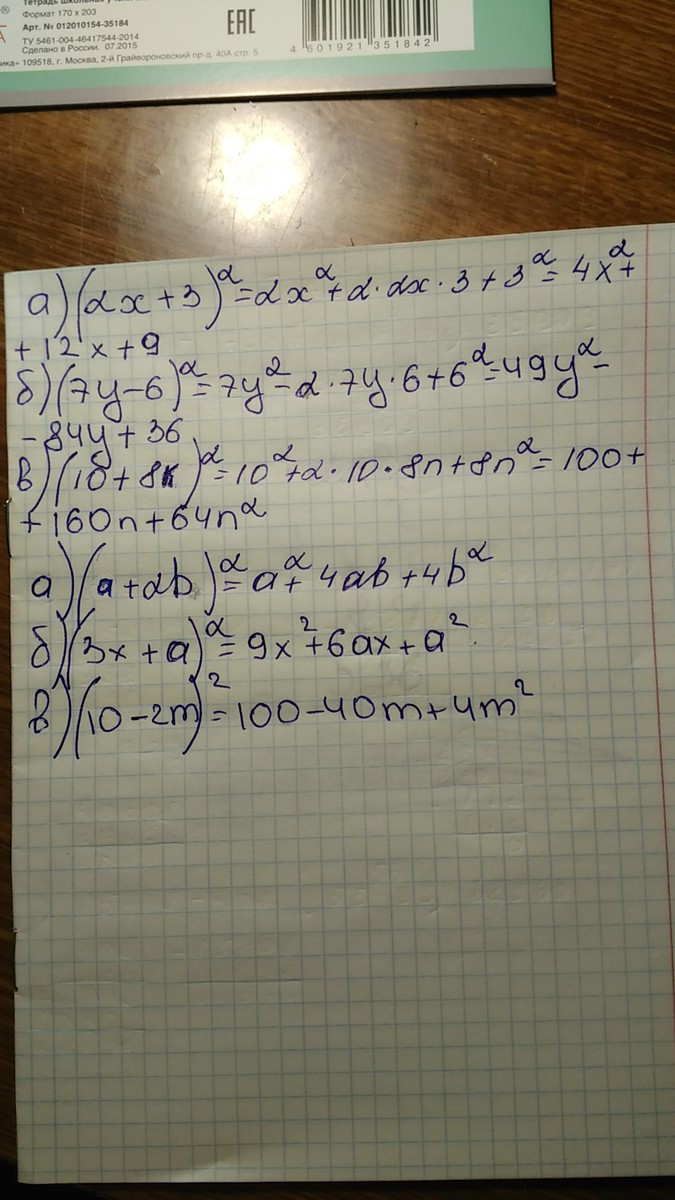 Формат 170 х 203
Арт. № 012010154-35184
ТУ 5461-004-46417544-2014
Сделано в России. 07.2015
109518, г. Москва, 2-й Грайвороновский пр-д, 40А стр. 5
ЕАС
4 601921 351842
а) (2x + 3)² = 2x² + 2 · 2x · 3 + 3² = 4x² +
+ 12x + 9
б) (7y - 6)² = 7y² - 2 · 7y · 6 + 6² = 49y² -
- 84y + 36
в) (10 + 8к)² = 10² + 2 · 10 · 8n + 8n² = 100 +
+ 160n + 64n²
а) (a + 2b)² = a² + 4ab + 4b²
б) (3x + a)² = 9x² + 6ax + a².
в) (10 - 2m)² = 100 - 40m + 4m²